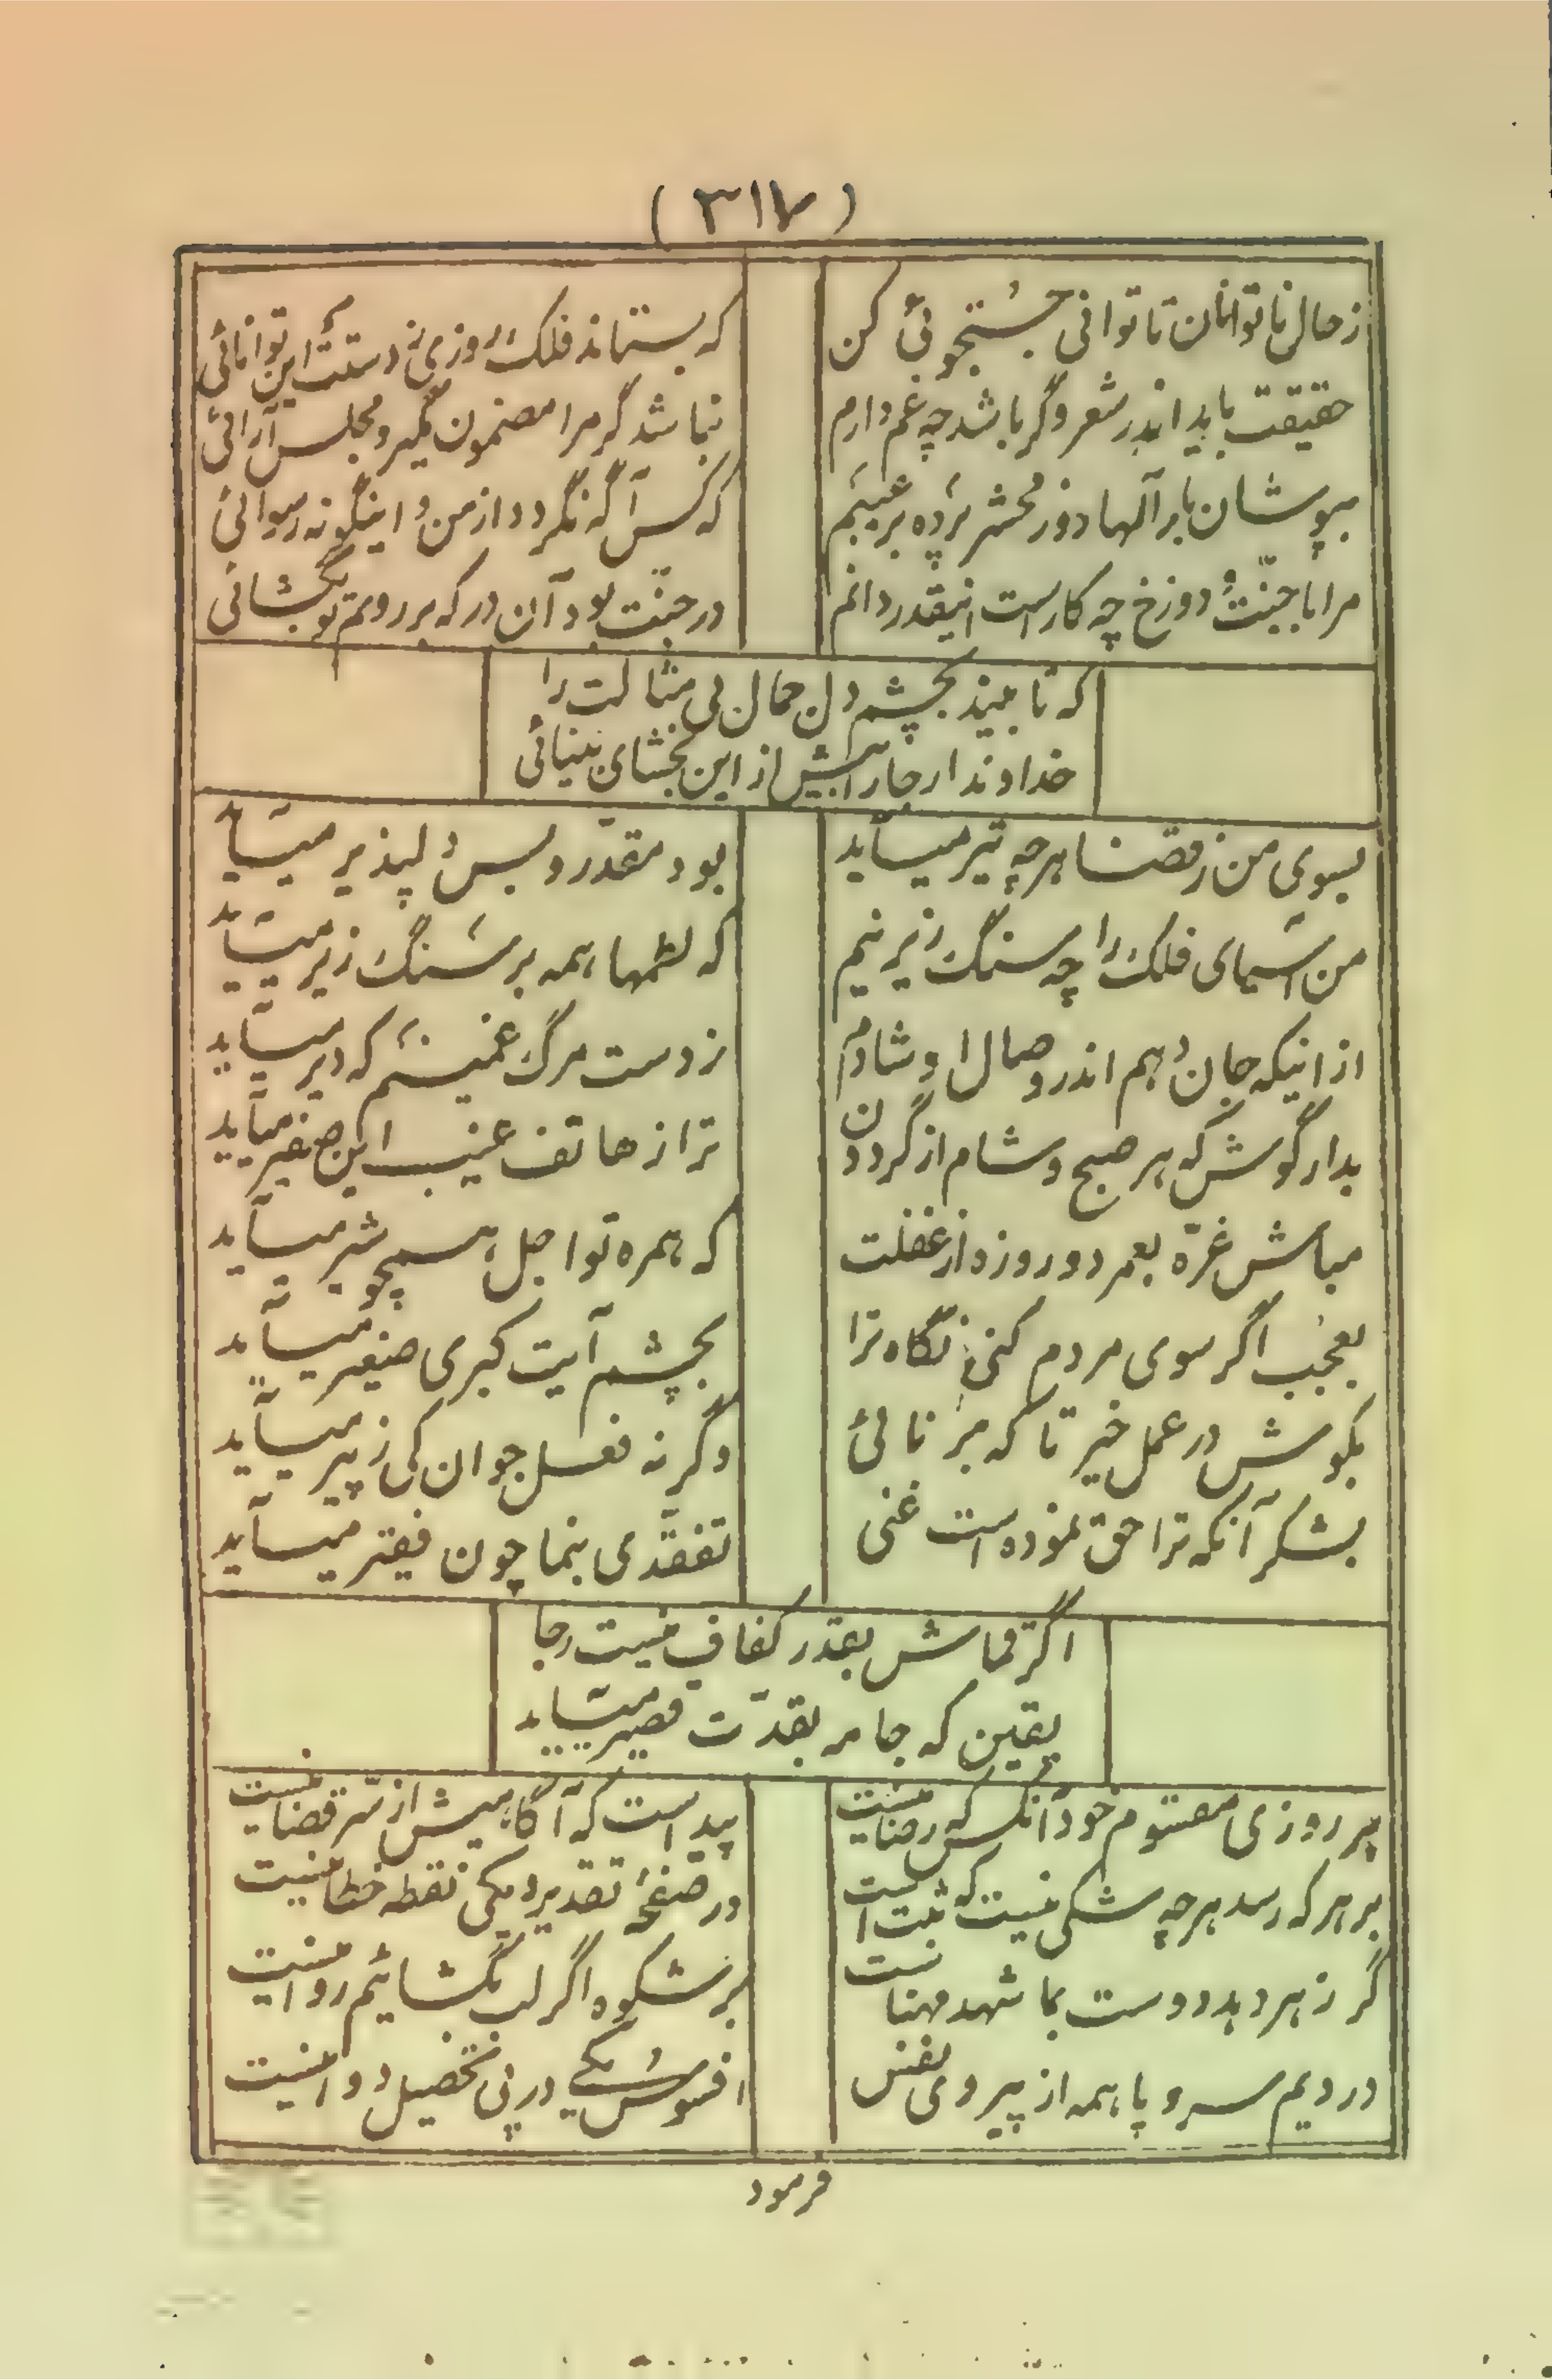 (۳۱۷)
ز حال ناتوانان تا توانی جُستجوئی کن
که بستاند فلک روزی ز دستت این توانائی
حقیقت باید اندر شعر و گر باشد چه غم دارم
نباشد گر مرا مضمون بکیر و مجلس آرائی
بپوشان بار آلها روز محشر پرده بر عیبم
که کس آگه نگردد از من و اینگونه رسوائی
مرا با جنّت و دوزخ چه کار است اینقدر دانم
در جنّت بود آن در که بر رویم تو بگشائی
که تا بیند بچشم دل جمال بی مثالت را
خداوندا رجا را بیش از این بخشای بینائی
بسوی من ز قضا هر چه تیر میآید
بود مقدّر و بس دلپذیر میآید
من آسیای فلک را چه سنگ زیرینم
که لطمها همه بر سنگ زیر میآید
از اینکه جان دهم اندر وصال او شادم
ز دست مرگ غمینم که دیر میآید
بدار گوش که هر صبح و شام از گردون
ترا ز هاتف غیب این صفیر میآید
مباش غرّه بعمر دو روزه از غفلت
که همره تو اجل همچو شیر میآید
بعجب اگر سوی مردم کنی نگاه ترا
بچشم آیت کبری صغیر میآید
بکوش در عمل خیر تا که برنائی
وگرنه فعل جوان کی ز پیر میآید
بشکر آنکه ترا حق نموده است غنی
تفقّدی بنما چون فقیر میآید
اگر قماش بقدر کفاف نیست رجا
یقین که جامه بقدّت قصیر میآید
بر روزی مقسوم خود آنکس که رضا نیست
پیداست که آگاهیش از سّر قضا نیست
بر هر که رسد هر چه شکی نیست که ثبت است
در صفحهٔ تقدیر یکی نقطه خطا نیست
گر زهر دهد دوست بما شهد مهناست
بر شکوه اگر لب بگشائیم روا نیست
دردیم سر و پا همه از پیروی نفس
افسوس یکی در پی تحصیل دوا نیست
فرمود